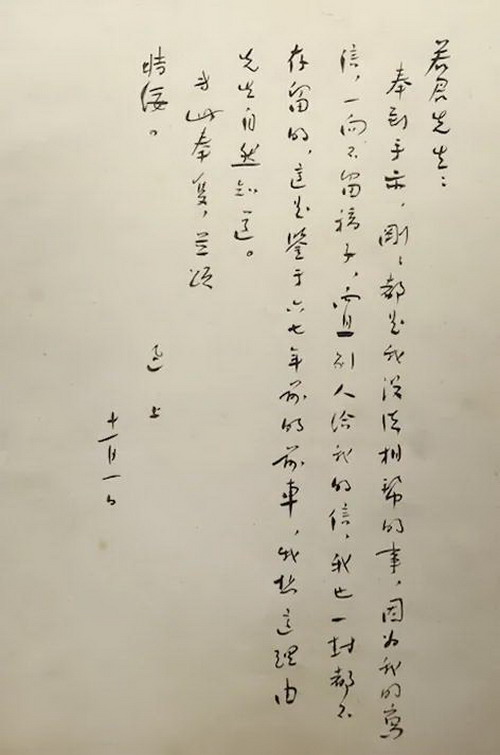 若君先生:
奉到手示,剛々都是我沒法相幫的事,因为我的寫
信,一向不留稿子,而且别人給我的信,我也一封都不
存留的,這是鑒于六七年前的前車,我想這理由
先生自然知道。
專此奉復,並頌
時綏。
迅 上
十一月一日